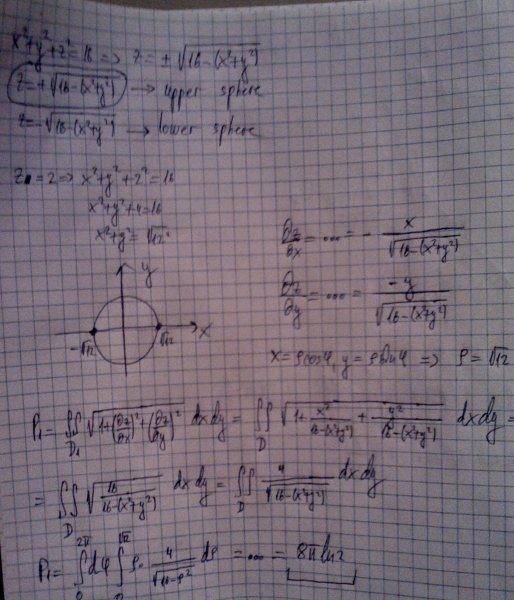 x²+y²+z²=16 => z = ± √16-(x²+y²)
z=+√16-(x²+y²) → upper sphere
z=-√16-(x²+y²) → lower sphere
z = 2 => x²+y²+2²=16
x²+y²+4=16
x²+y²=√12²
∂z/∂x = ... = - x/√16-(x²+y²)
∂z/∂y = ... = -y/√16-(x²+y²)
y
-√12 √12 x
x=ρcosφ, y=ρsinφ => ρ=√12
P₁ = ∬D₁ √1+(∂z/∂x)²+(∂z/∂y)² dxdy = ∬D √1+x²/16-(x²+y²) + y²/16-(x²+y²) dxdy =
= ∬D √16/16-(x²+y²) dxdy = ∬D 4/√16-(x²+y²) dxdy
P₁ = ∫₀^2π dφ ∫₀^√12 ρ· 4/√16-ρ² dρ = ... = 8π ln2